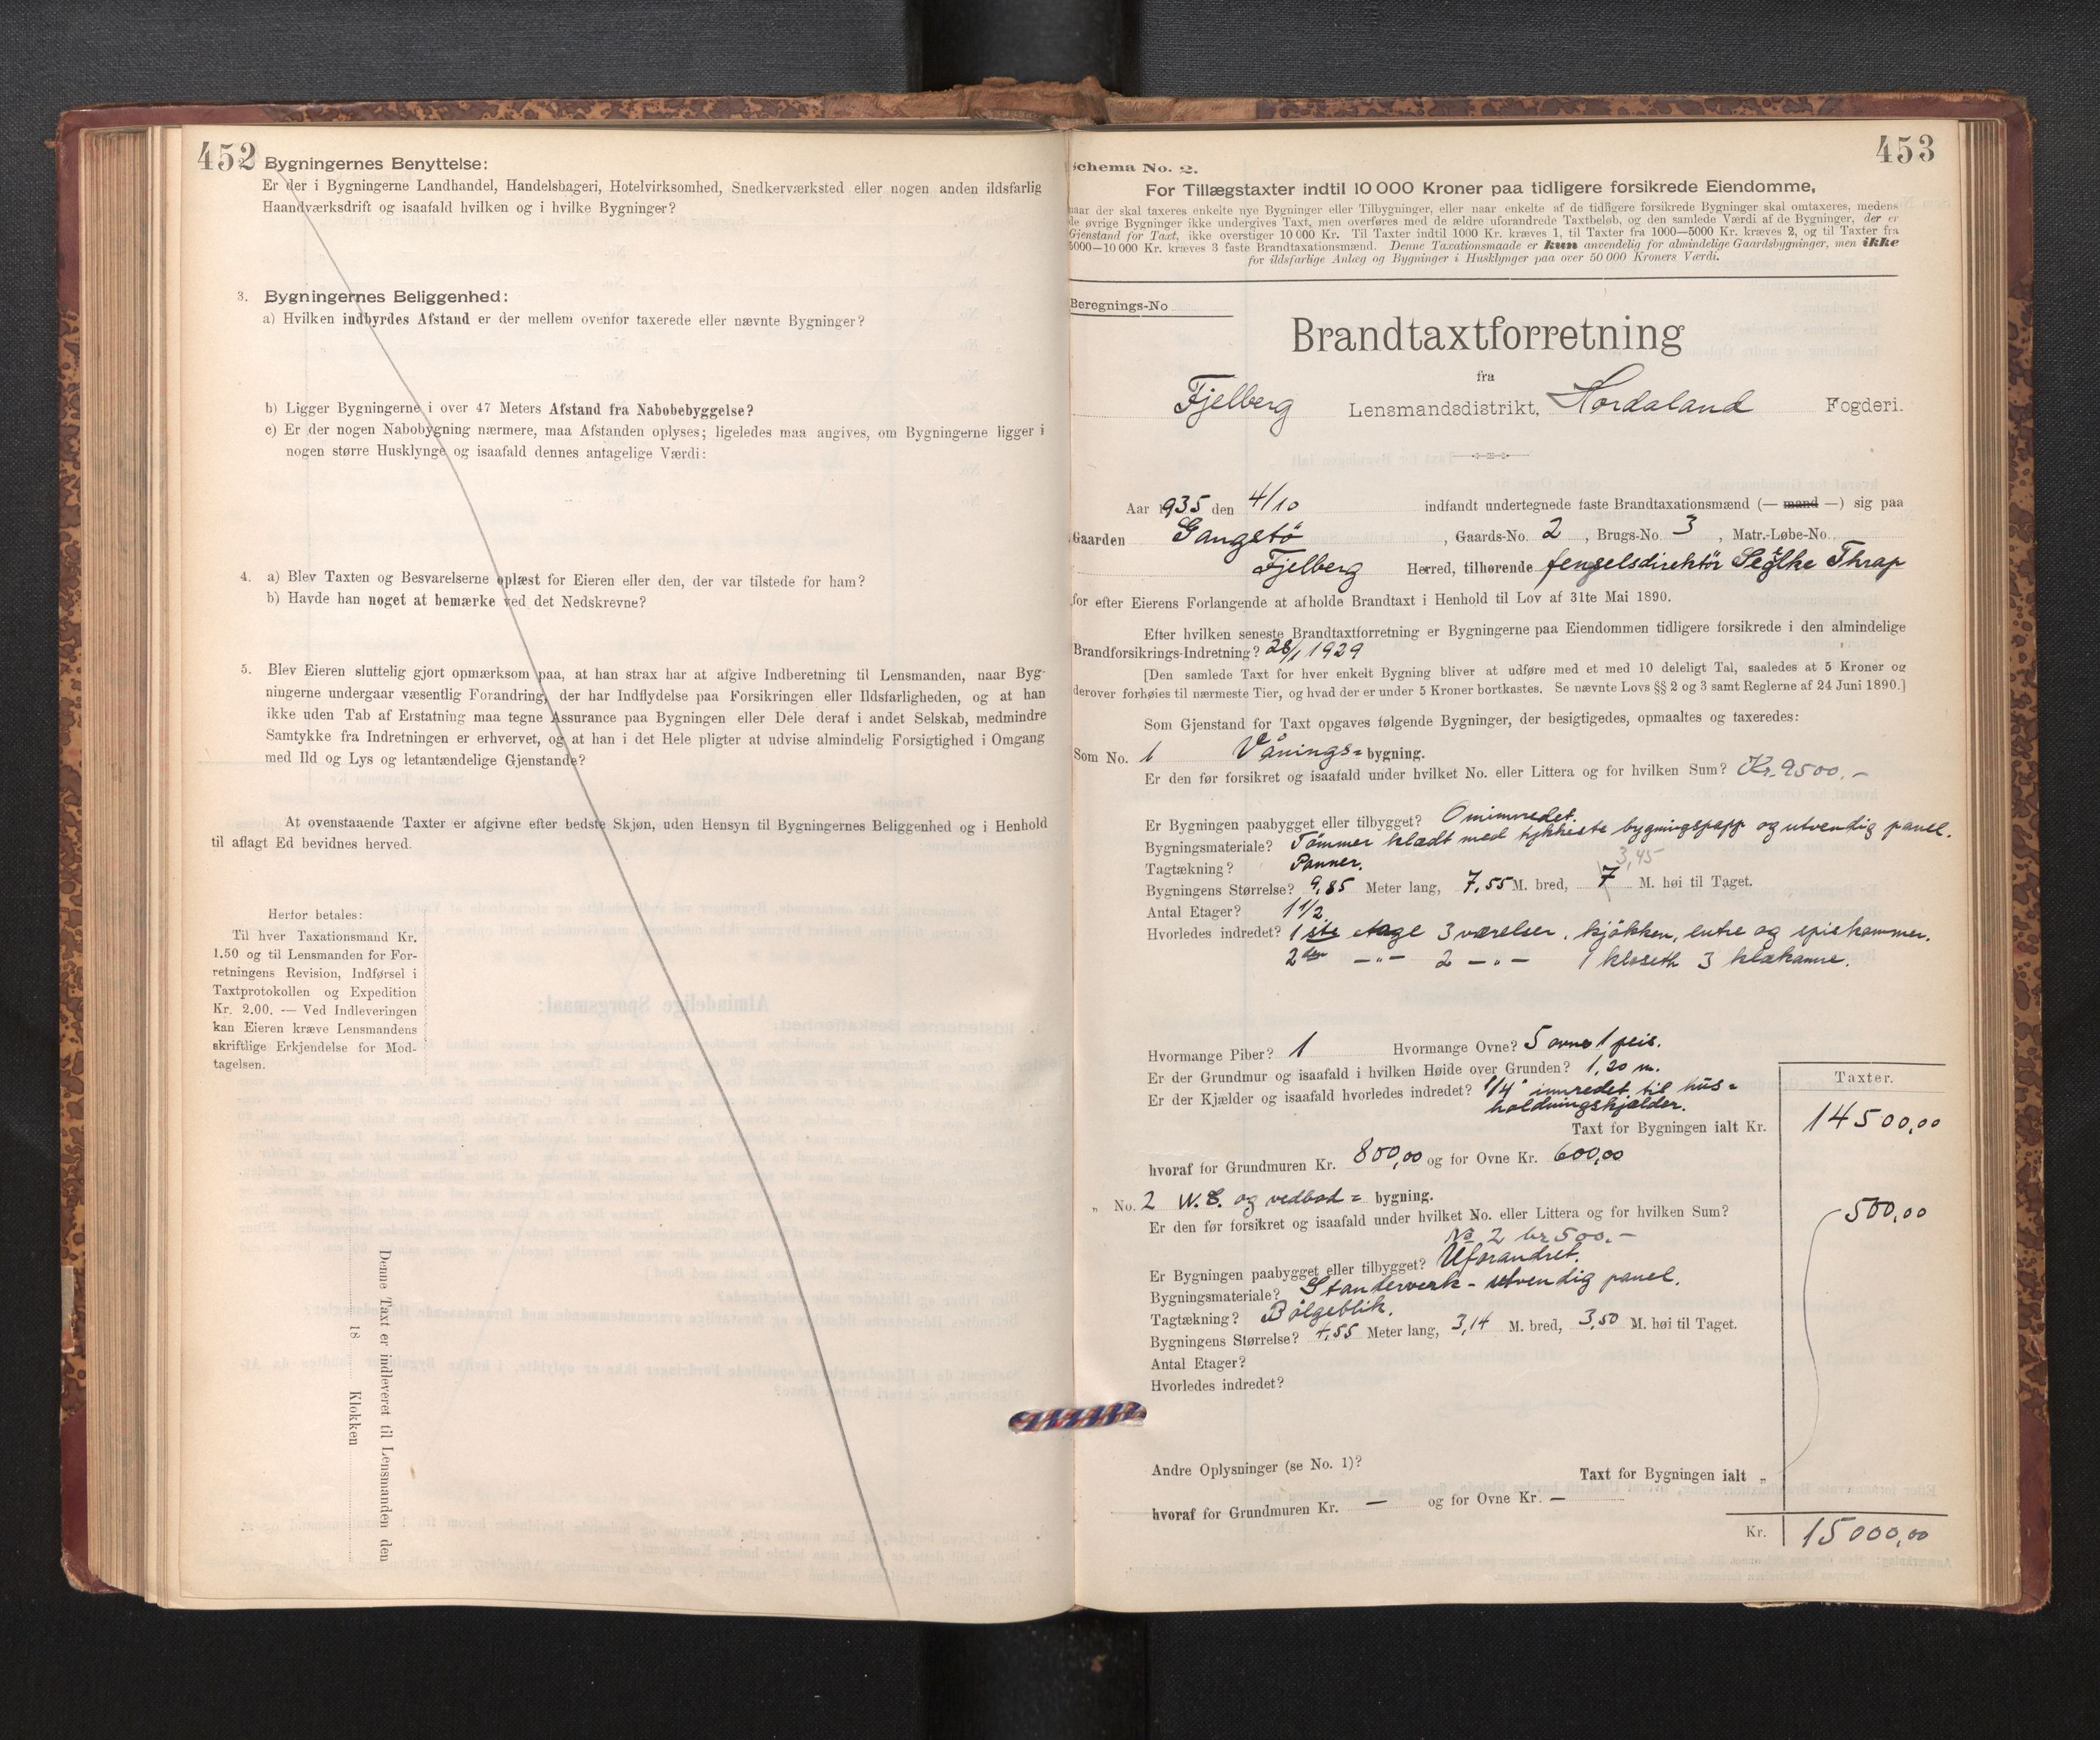 452
Bygningernes Benyttelse:
Er der i Bygningerne Landhandel, Handelsbageri, Hotelvirksomhed, Snedkerværksted eller nogen anden ildsfarlig
Haandværksdrift og isaafald hvilken og i hvilke Bygninger?
3. Bygningernes Beliggenhed:
a) Hvilken indbyrdes Afstand er der mellem ovenfor taxerede eller nævnte Bygninger?
b) Ligger Bygningerne i over 47 Meters Afstand fra Nabobebyggelse?
c) Er der nogen Nabobygning nærmere, maa Afstanden oplyses; ligeledes maa angives, om Bygningerne ligger i
nogen større Husklynge og isaafald dennes antagelige Værdi:
4. a) Blev Taxten og Besvarelserne oplæst for Eieren eller den, der var tilstede for ham?
b) Havde han noget at bemærke ved det Nedskrevne?
5. Blev Eieren sluttelig gjort opmærksom paa, at han strax har at afgive Indberetning til Lensmanden, naar Byg-
ningerne undergaar væsentlig Forandring, der har Indflydelse paa Forsikringen eller Ildsfarligheden, og at han
ikke uden Tab af Erstatning maa tegne Assurance paa Bygningen eller Dele deraf i andet Selskab, medmindre
Samtykke fra Indretningen er erhvervet, og at han i det Hele pligter at udvise almindelig Forsigtighed i Omgang
med Ild og Lys og letantændelige Gjenstande?
At ovenstaaende Taxter er afgivne efter bedste Skjøn, uden Hensyn til Bygningernes Beliggenhed og i Henhold
til aflagt Ed bevidnes herved.
Herfor betales:
Til hver Taxationsmand Kr.
1.50 og til Lensmanden for For-
retningens Revision, Indførsel i
Taxtprotokollen og Expedition
Kr. 2.00. — Ved Indleveringen
kan Eieren kræve Lensmandens
skriftlige Erkjendelse for Mod-
tagelsen.
Denne Taxt er indleveret til Lensmanden den
18 Klokken
453
Schema No. 2.
For Tillægstaxter indtil 10 000 Kroner paa tidligere forsikrede Eiendomme,
naar der skal taxeres enkelte nye Bygninger eller Tilbygninger, eller naar enkelte af de tidligere forsikrede Bygninger skal omtaxeres, medens
de øvrige Bygninger ikke undergives Taxt, men overføres med de ældre uforandrede Taxtbeløb, og den samlede Værdi af de Bygninger, der er
Gjenstand for Taxt, ikke overstiger 10 000 Kr. Til Taxter indtil 1000 Kr. kræves 1, til Taxter fra 1000—5000 Kr. kræves 2, og til Taxter fra
5000—10 000 Kr. kræves 3 faste Brandtaxationsmænd. Denne Taxationsmaade er kun anvendelig for almindelige Gaardsbygninger, men ikke
for ildsfarlige Anlæg og Bygninger i Husklynger paa over 50 000 Kroners Værdi.
Beregnings-No
Brandtaxtforretning
fra
Fjelberg Lensmandsdistrikt, Hordaland Fogderi.
Aar 1935 den 4/10 indfandt undertegnede faste Brandtaxationsmænd (— mand —) sig paa
Gaarden Gangstö, Gaards-No. 2, Brugs-No. 3, Matr.-Løbe-No.
Fjelberg Herred, tilhørende fengselsdirektör Thrap
for efter Eierens Forlangende at afholde Brandtaxt i Henhold til Lov af 31te Mai 1890.
Efter hvilken seneste Brandtaxtforretning er Bygningerne paa Eiendommen tidligere forsikrede i den almindelige
Brandforsikrings-Indretning? 28/1 1929
[Den samlede Taxt for hver enkelt Bygning bliver at udføre med et med 10 deleligt Tal, saaledes at 5 Kroner og
derover forhøies til nærmeste Tier, og hvad der er under 5 Kroner bortkastes. Se nævnte Lovs §§ 2 og 3 samt Reglerne af 24 Juni 1890.]
Som Gjenstand for Taxt opgaves følgende Bygninger, der besigtigedes, opmaaltes og taxeredes:
Som No. 1 Vånings= bygning.
Er den før forsikret og isaafald under hvilket No. eller Littera og for hvilken Sum? Kr. 9500.–
Er Bygningen paabygget eller tilbygget? Ominnredet.
Bygningsmateriale? Tömmer klædt med tykkeste bygningspapp og utvendig panel.
Tagtækning? Panner.
3,45
Bygningens Størrelse? 9,85 Meter lang, 7,55 M. bred, 7 M. høi til Taget.
Antal Etager? 1 1/2
Hvorledes indredet? 1ste etage 3 værelser, kjökken, entre og spiskammer.
2den –"– 2 –"– 1 kloseth 3
Hvormange Piber? 1 Hvormange Ovne? 5 ovne 1 peis.
Er der Grundmur og isaafald i hvilken Høide over Grunden? 1,20 m.
Er der Kjælder og isaafald hvorledes indredet? 1/4 innredet til hus=
holdningskjælder.
Taxter.
Taxt for Bygningen ialt Kr. 14500,00
hvoraf for Grundmuren Kr. 800,00 og for Ovne Kr. 600,00
„ No. 2 W.C. og vedbod = bygning.
500,00
Er den før forsikret og isaafald under hvilket No. eller Littera og for hvilken Sum?
No 2 kr 500.–
Er Bygningen paabygget eller tilbygget? Uforandret.
Bygningsmateriale? Standerverk - utvendig panel.
Tagtækning? Bölgeblik.
Bygningens Størrelse? 4,55 Meter lang, 3,14 M. bred, 3,50 M. høi til Taget.
Antal Etager?
Hvorledes indredet?
Andre Oplysninger (se No. 1)?
Taxt for Bygningen ialt „
hvoraf for Grundmuren Kr. — og for Ovne Kr. —
Kr. 15000,00